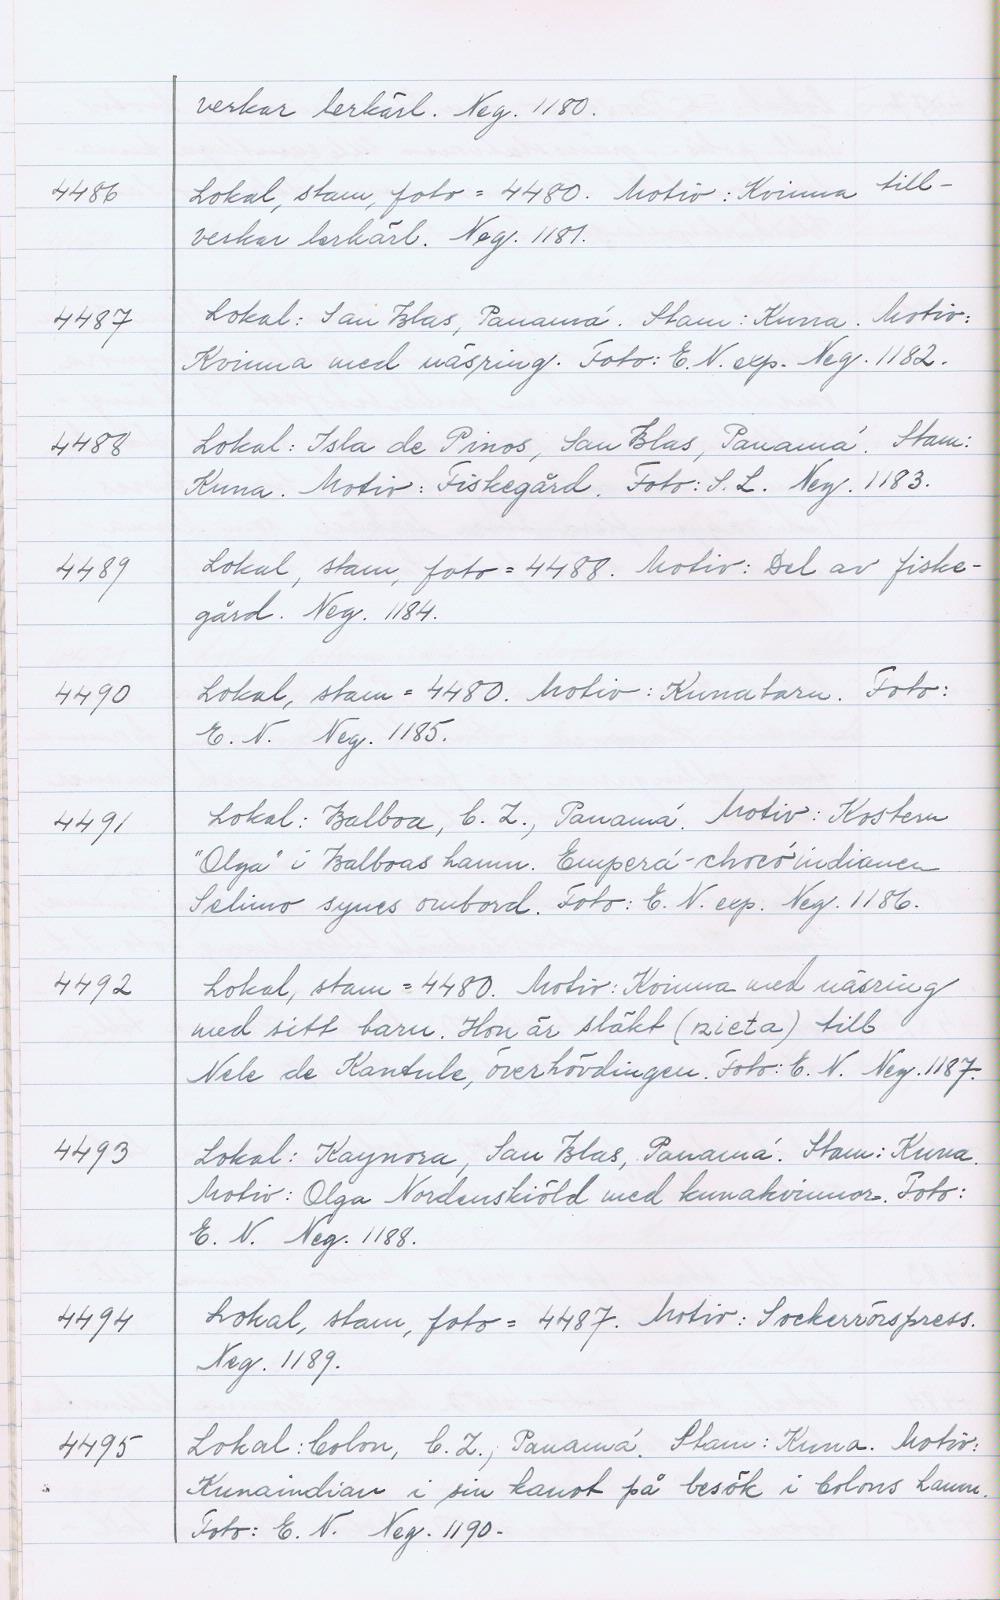 verkar lerkärl. Neg. 1180.
4486 Lokal, stam, foto = 4480. Motiv: Kvinna till-
verkar lerkärl. Neg. 1181.
4487 Lokal: San Blas, Panamá. Stam: Kuna. Motiv:
Kvinna med näsring. Foto: E.N. exp. Neg. 1182.
4488 Lokal: Isla de Pinos, San Blas, Panamá. Stam:
Kuna. Motiv: Fiskegård. Foto: S.L. Neg. 1183.
4489 Lokal, stam, foto = 4488. Motiv: Del av fiske-
gård. Neg. 1184.
4490 Lokal, stam = 4480. Motiv: Kunabarn. Foto:
E.N. Neg. 1185.
4491 Lokal: Balboa, C.Z., Panamá. Motiv: Kostern
"Olga" i Balboas hamn. Emperá-chocóindianen
Selimo synes ombord. Foto: E.N. exp. Neg. 1186.
4492 Lokal, stam = 4480. Motiv: Kvinna med näsring
med sitt barn. Hon är släkt (nieta) till
Nele de Kantule, överhövdingen. Foto: E.N. Neg. 1187.
4493 Lokal: Kaynora, San Blas, Panamá. Stam: Kuna.
Motiv: Olga Nordenskiöld med kunakvinnor. Foto:
E.N. Neg. 1188.
4494 Lokal, stam, foto = 4487. Motiv: Sockerrörspress.
Neg. 1189.
4495 Lokal: Colon, C.Z., Panamá. Stam: Kuna. Motiv:
Kunaindian i sin kanot på besök i Colons hamn.
Foto: E.N. Neg. 1190.